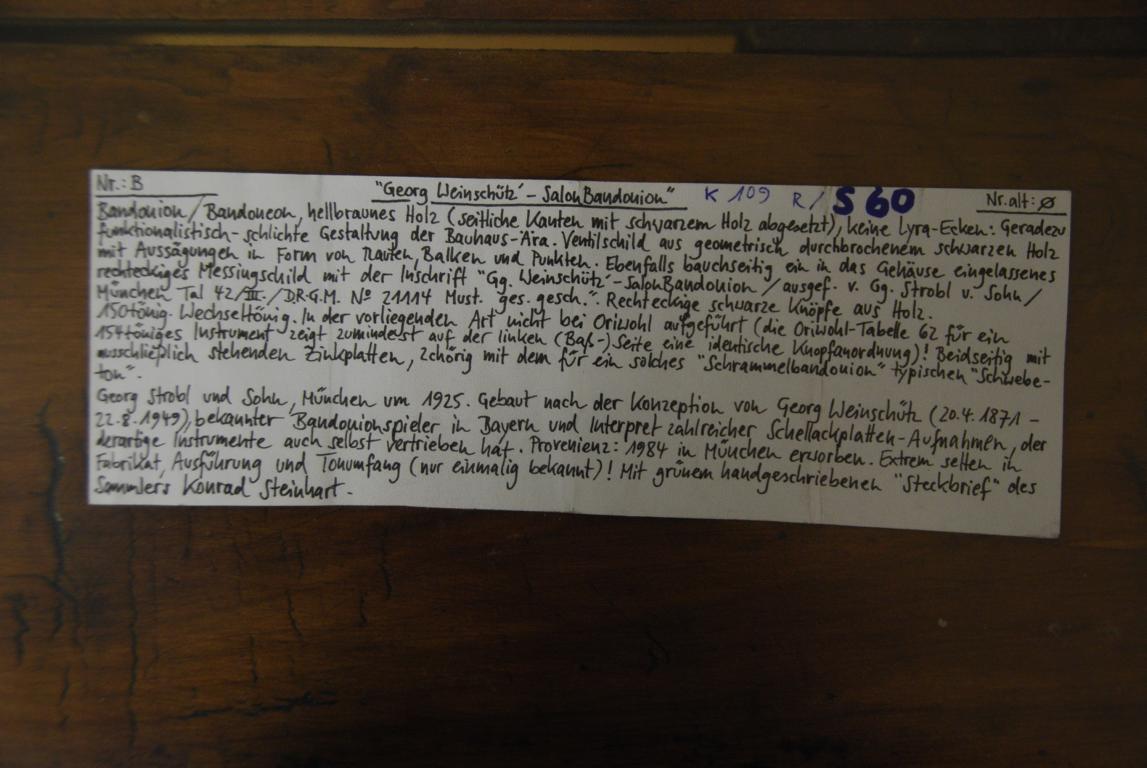 Nr.: B "Georg Weinschütz'-SalonBandonion" K 109 R/ S 60 Nr. alt: ø
Bandonion/Bandoneon, hellbraunes Holz (seitliche Kanten mit schwarzem Holz abgesetzt), keine Lyra-Ecken: Geradezu
funktionalistisch-schlichte Gestaltung der Bauhaus-Ära. Ventilschild aus geometrisch durchbrochenem schwarzen Holz
mit Aussägungen in Form von Rauten, Balken und Punkten. Ebenfalls bauchseitig ein in das Gehäuse eingelassenes
rechteckiges Messingschild mit der Inschrift "Gg. Weinschütz'-SalonBandonion / ausgef. v. Gg. Strobl u. Sohn/
München Tal 42/III./DR.G.M. No 21114 Must. ges. gesch.". Rechteckige schwarze Knöpfe aus Holz.
150tönig. Wechseltönig. In der vorliegenden Art nicht bei Oriwohl aufgeführt (die Oriwohl-Tabelle 62 für ein
154töniges Instrument zeigt zumindest auf der linken (Baß-)Seite eine identische Knopfanordnung)! Beidseitig mit
ausschließlich stehenden Zinkplatten, 2chörig mit dem für ein solches "Schrammelbandonion" typischen "Schwebe-
ton".
Georg Strobl und Sohn, München um 1925. Gebaut nach der Konzeption von Georg Weinschütz (20.4.1871 -
22.8.1949), bekannter Bandonionspieler in Bayern und Interpret zahlreicher Schellackplatten-Aufnahmen, der
derartige Instrumente auch selbst vertrieben hat. Provenienz: 1984 in München erworben. Extrem selten in
Fabrikat, Ausführung und Tonumfang (nur einmalig bekannt)! Mit grünem handgeschriebenen "Steckbrief" des
Sammlers Konrad Steinhart.